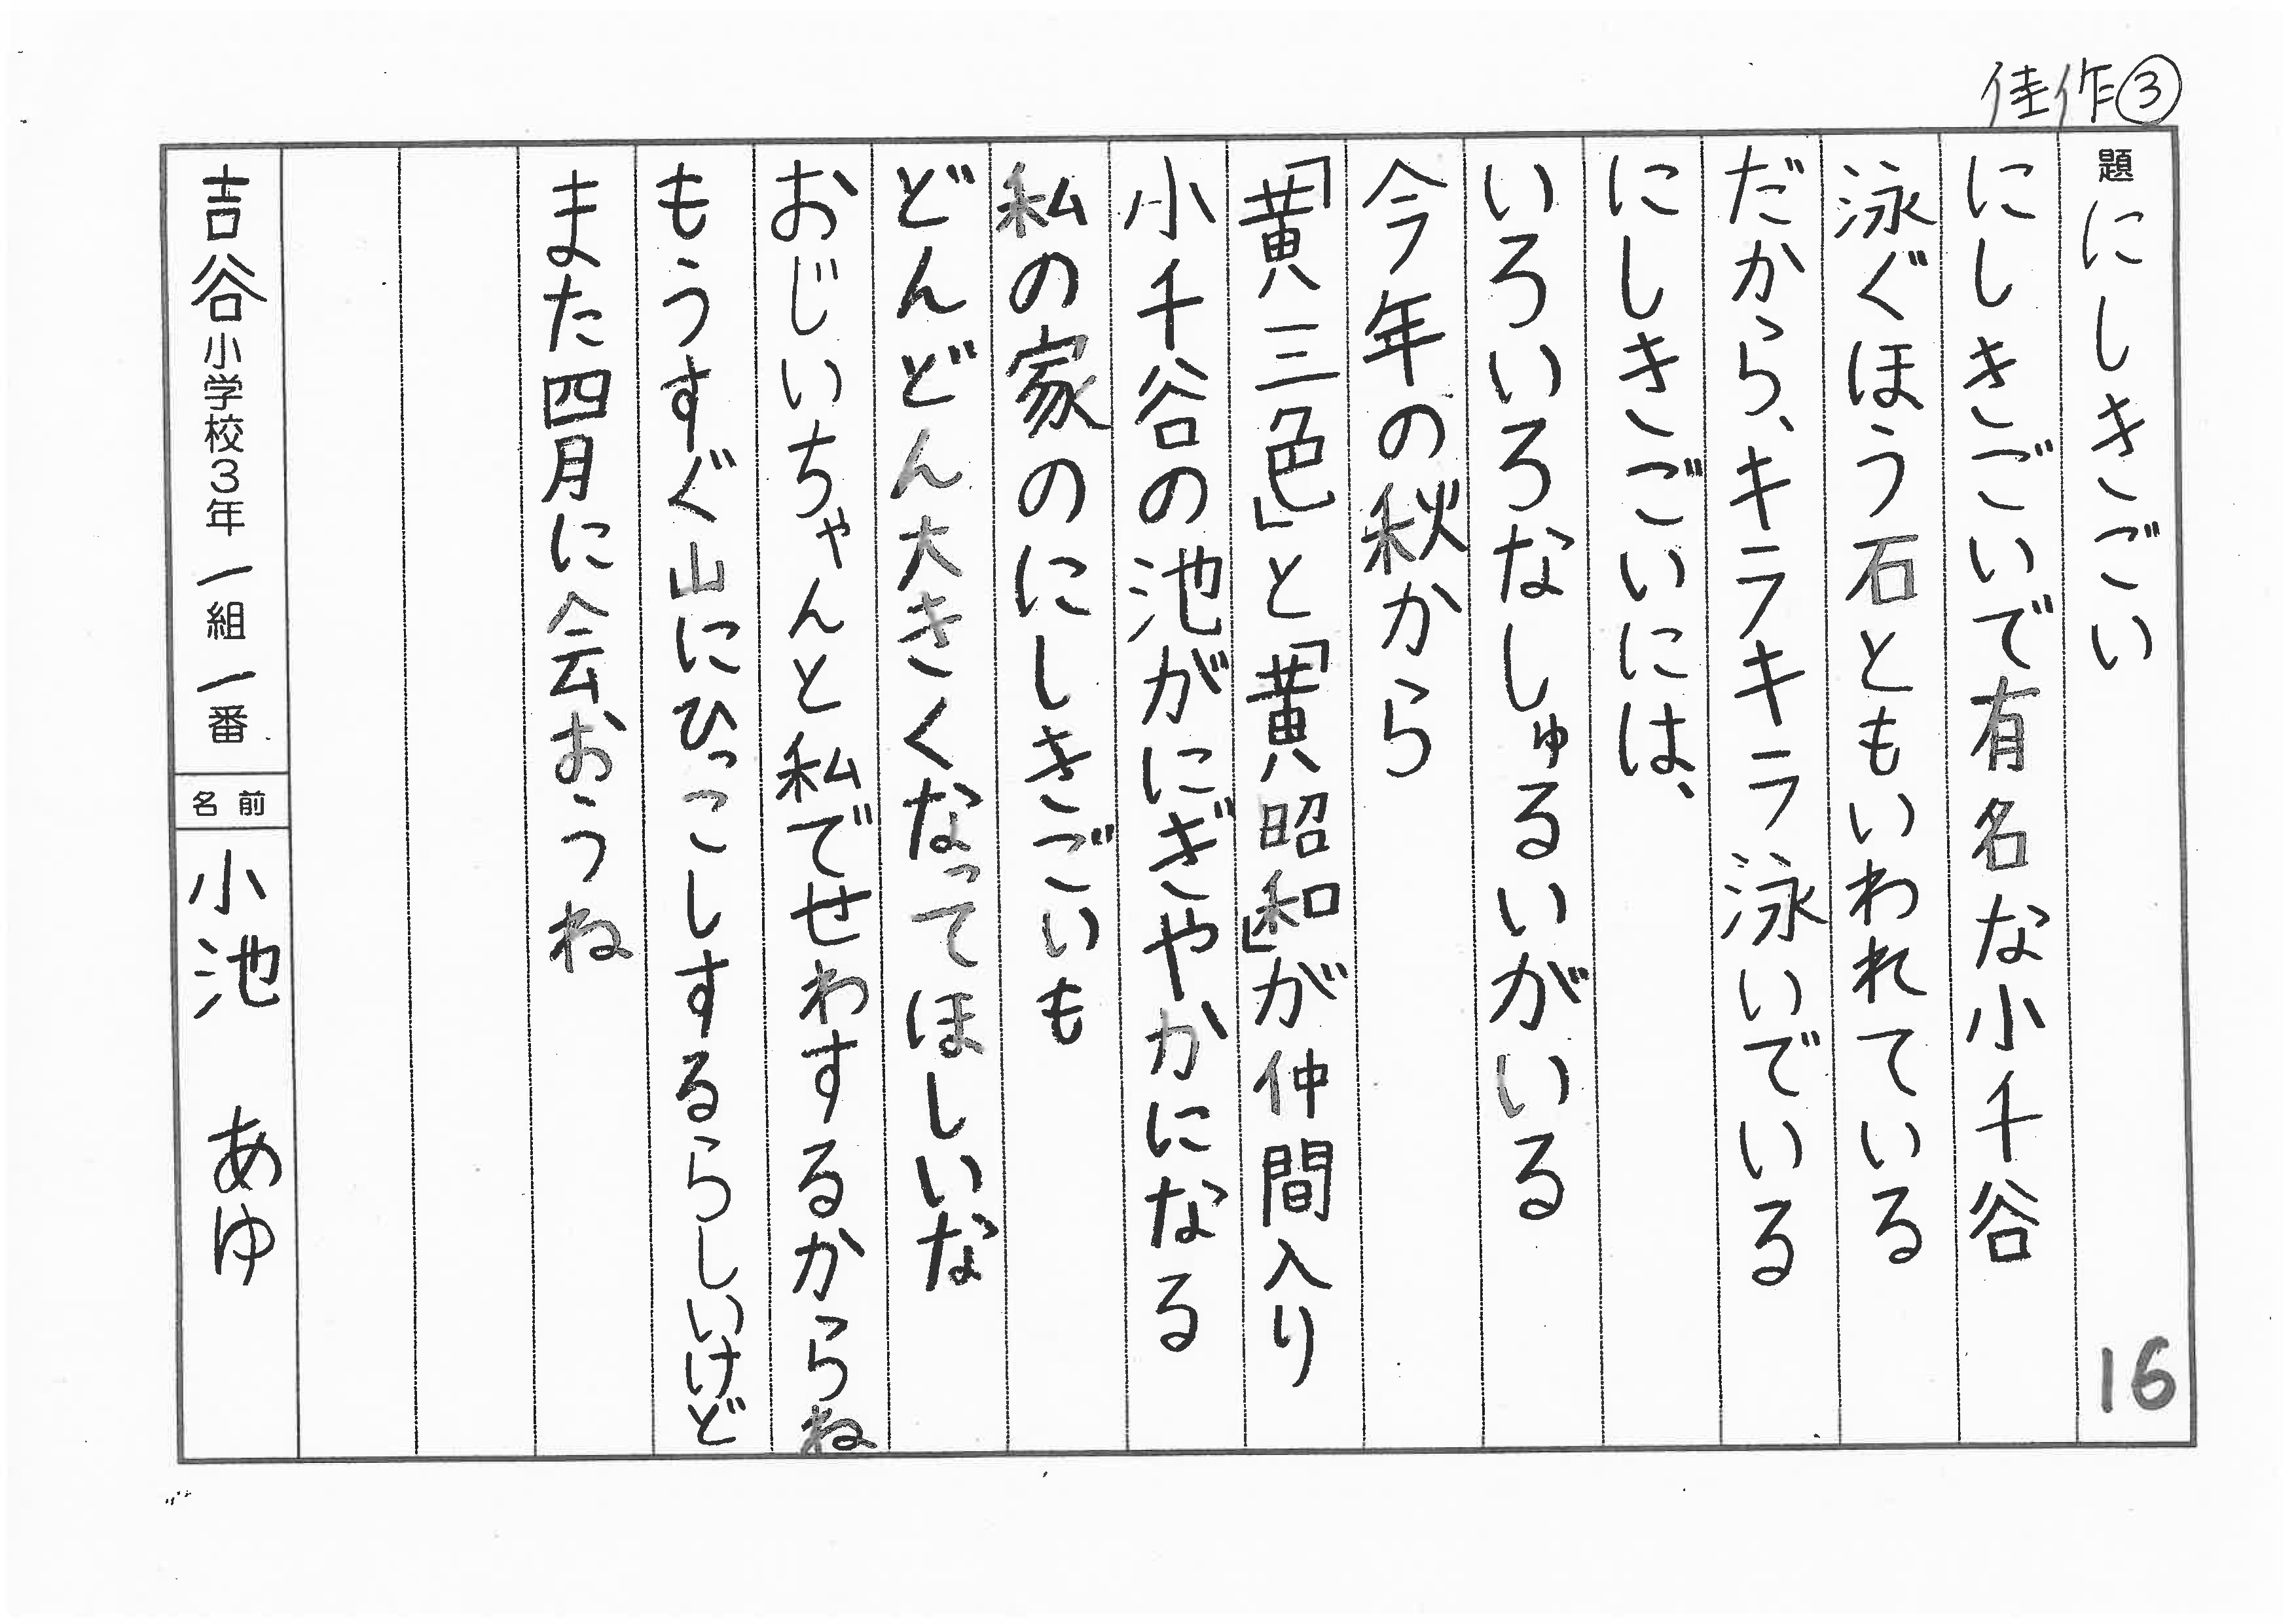 佳作③
題 にしきごい 16
にしきごいで有名な小千谷
泳ぐほう石ともいわれている
だから、キラキラ泳いでいる
にしきごいには、
いろいろなしゅるいがいる
今年の秋から
「黄三色」と「黄昭和」が仲間入り
小千谷の池がにぎやかになる
私の家のにしきごいも
どんどん大きくなってほしいな
おじいちゃんと私でせわするからね
もうすぐ山にひっこしするらしいけど
また四月に会おうね
吉谷小学校3年一組一番 名前 小池 あゆ